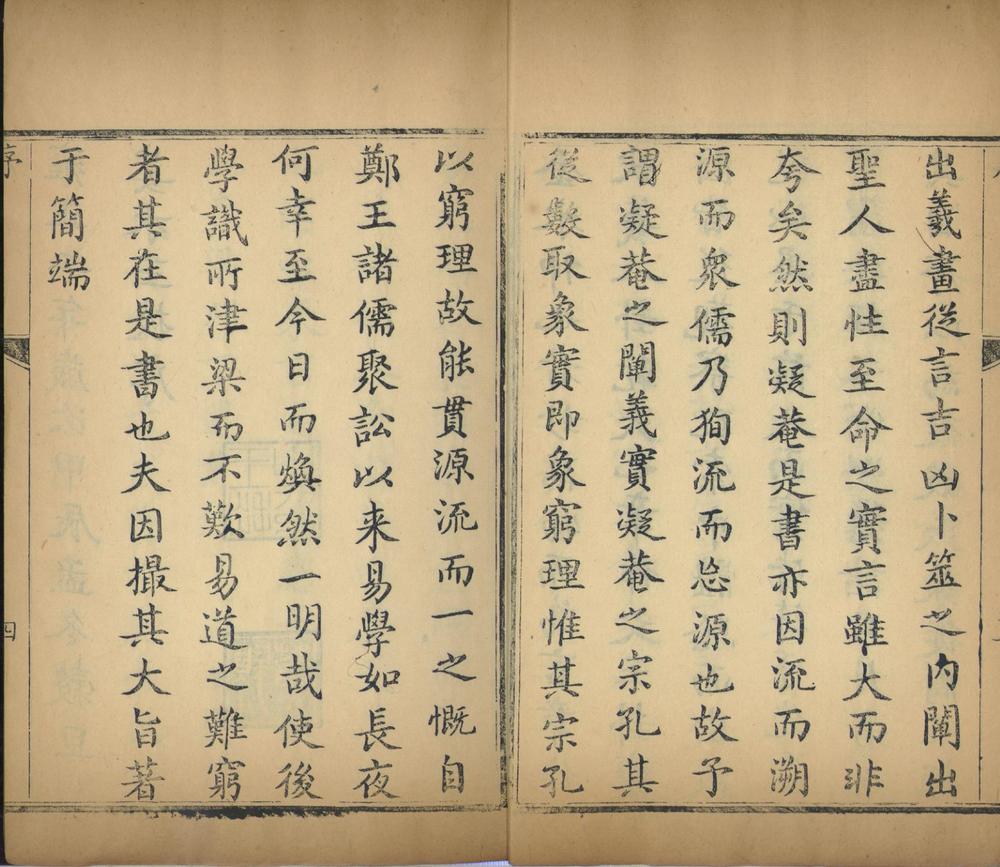 出羲畫從言吉凶卜筮之内闡出
聖人盡性至命之實言雖大而非
夸矣然則凝菴是書亦因流而溯
源而衆儒乃狥流而忘源也故予
謂凝菴之闡義實凝菴之宗孔其
從數取象實即象窮理惟其宗孔
以窮理故能貫源流而一之慨自
鄭王諸儒聚訟以来易學如長夜
何幸至今日而煥然一明哉使後
學識所津梁而不歎易道之難窮
者其在是書也夫因撮其大旨著
于簡端
序
四